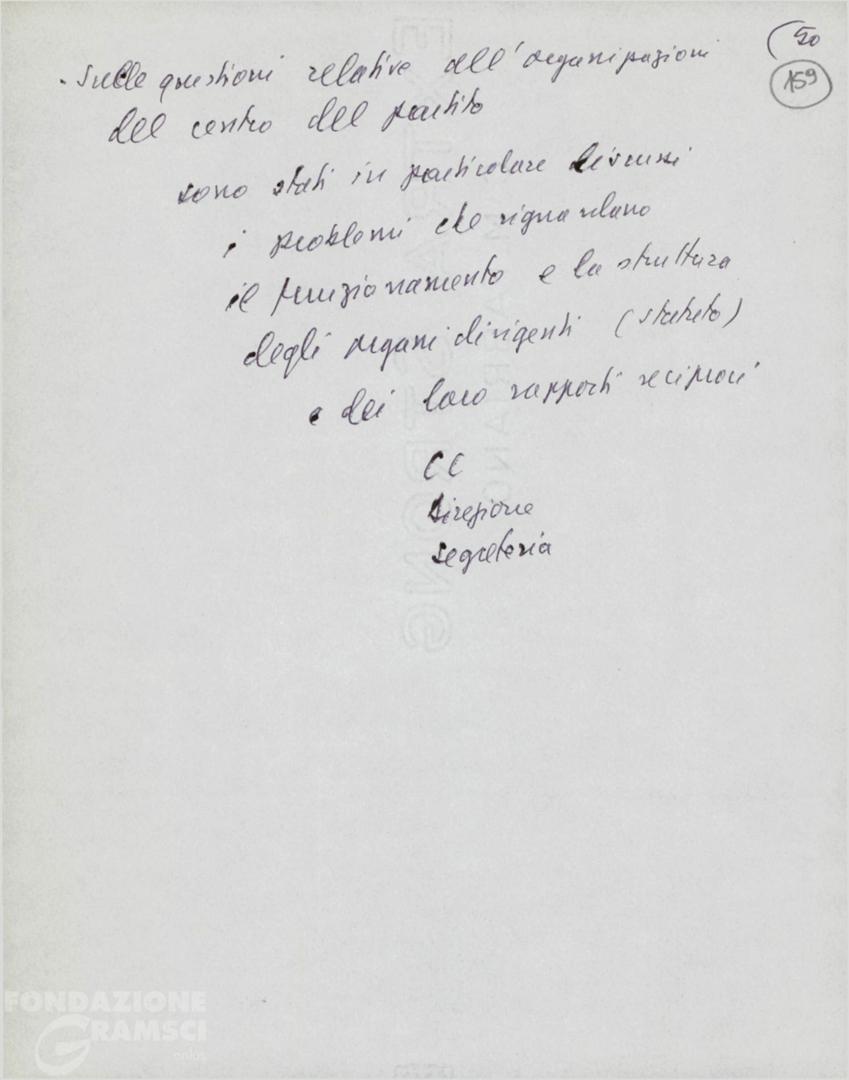 50
159
- Sulle questioni relative all'organizzazioni
del centro del partito
sono stati in particolare discussi
i problemi che riguardano
il funzionamento e la struttura
degli organi dirigenti (statuto)
e dei loro rapporti reciproci
CC
Direzione
Segreteria
FONDAZIONE
GRAMSCI
onlus